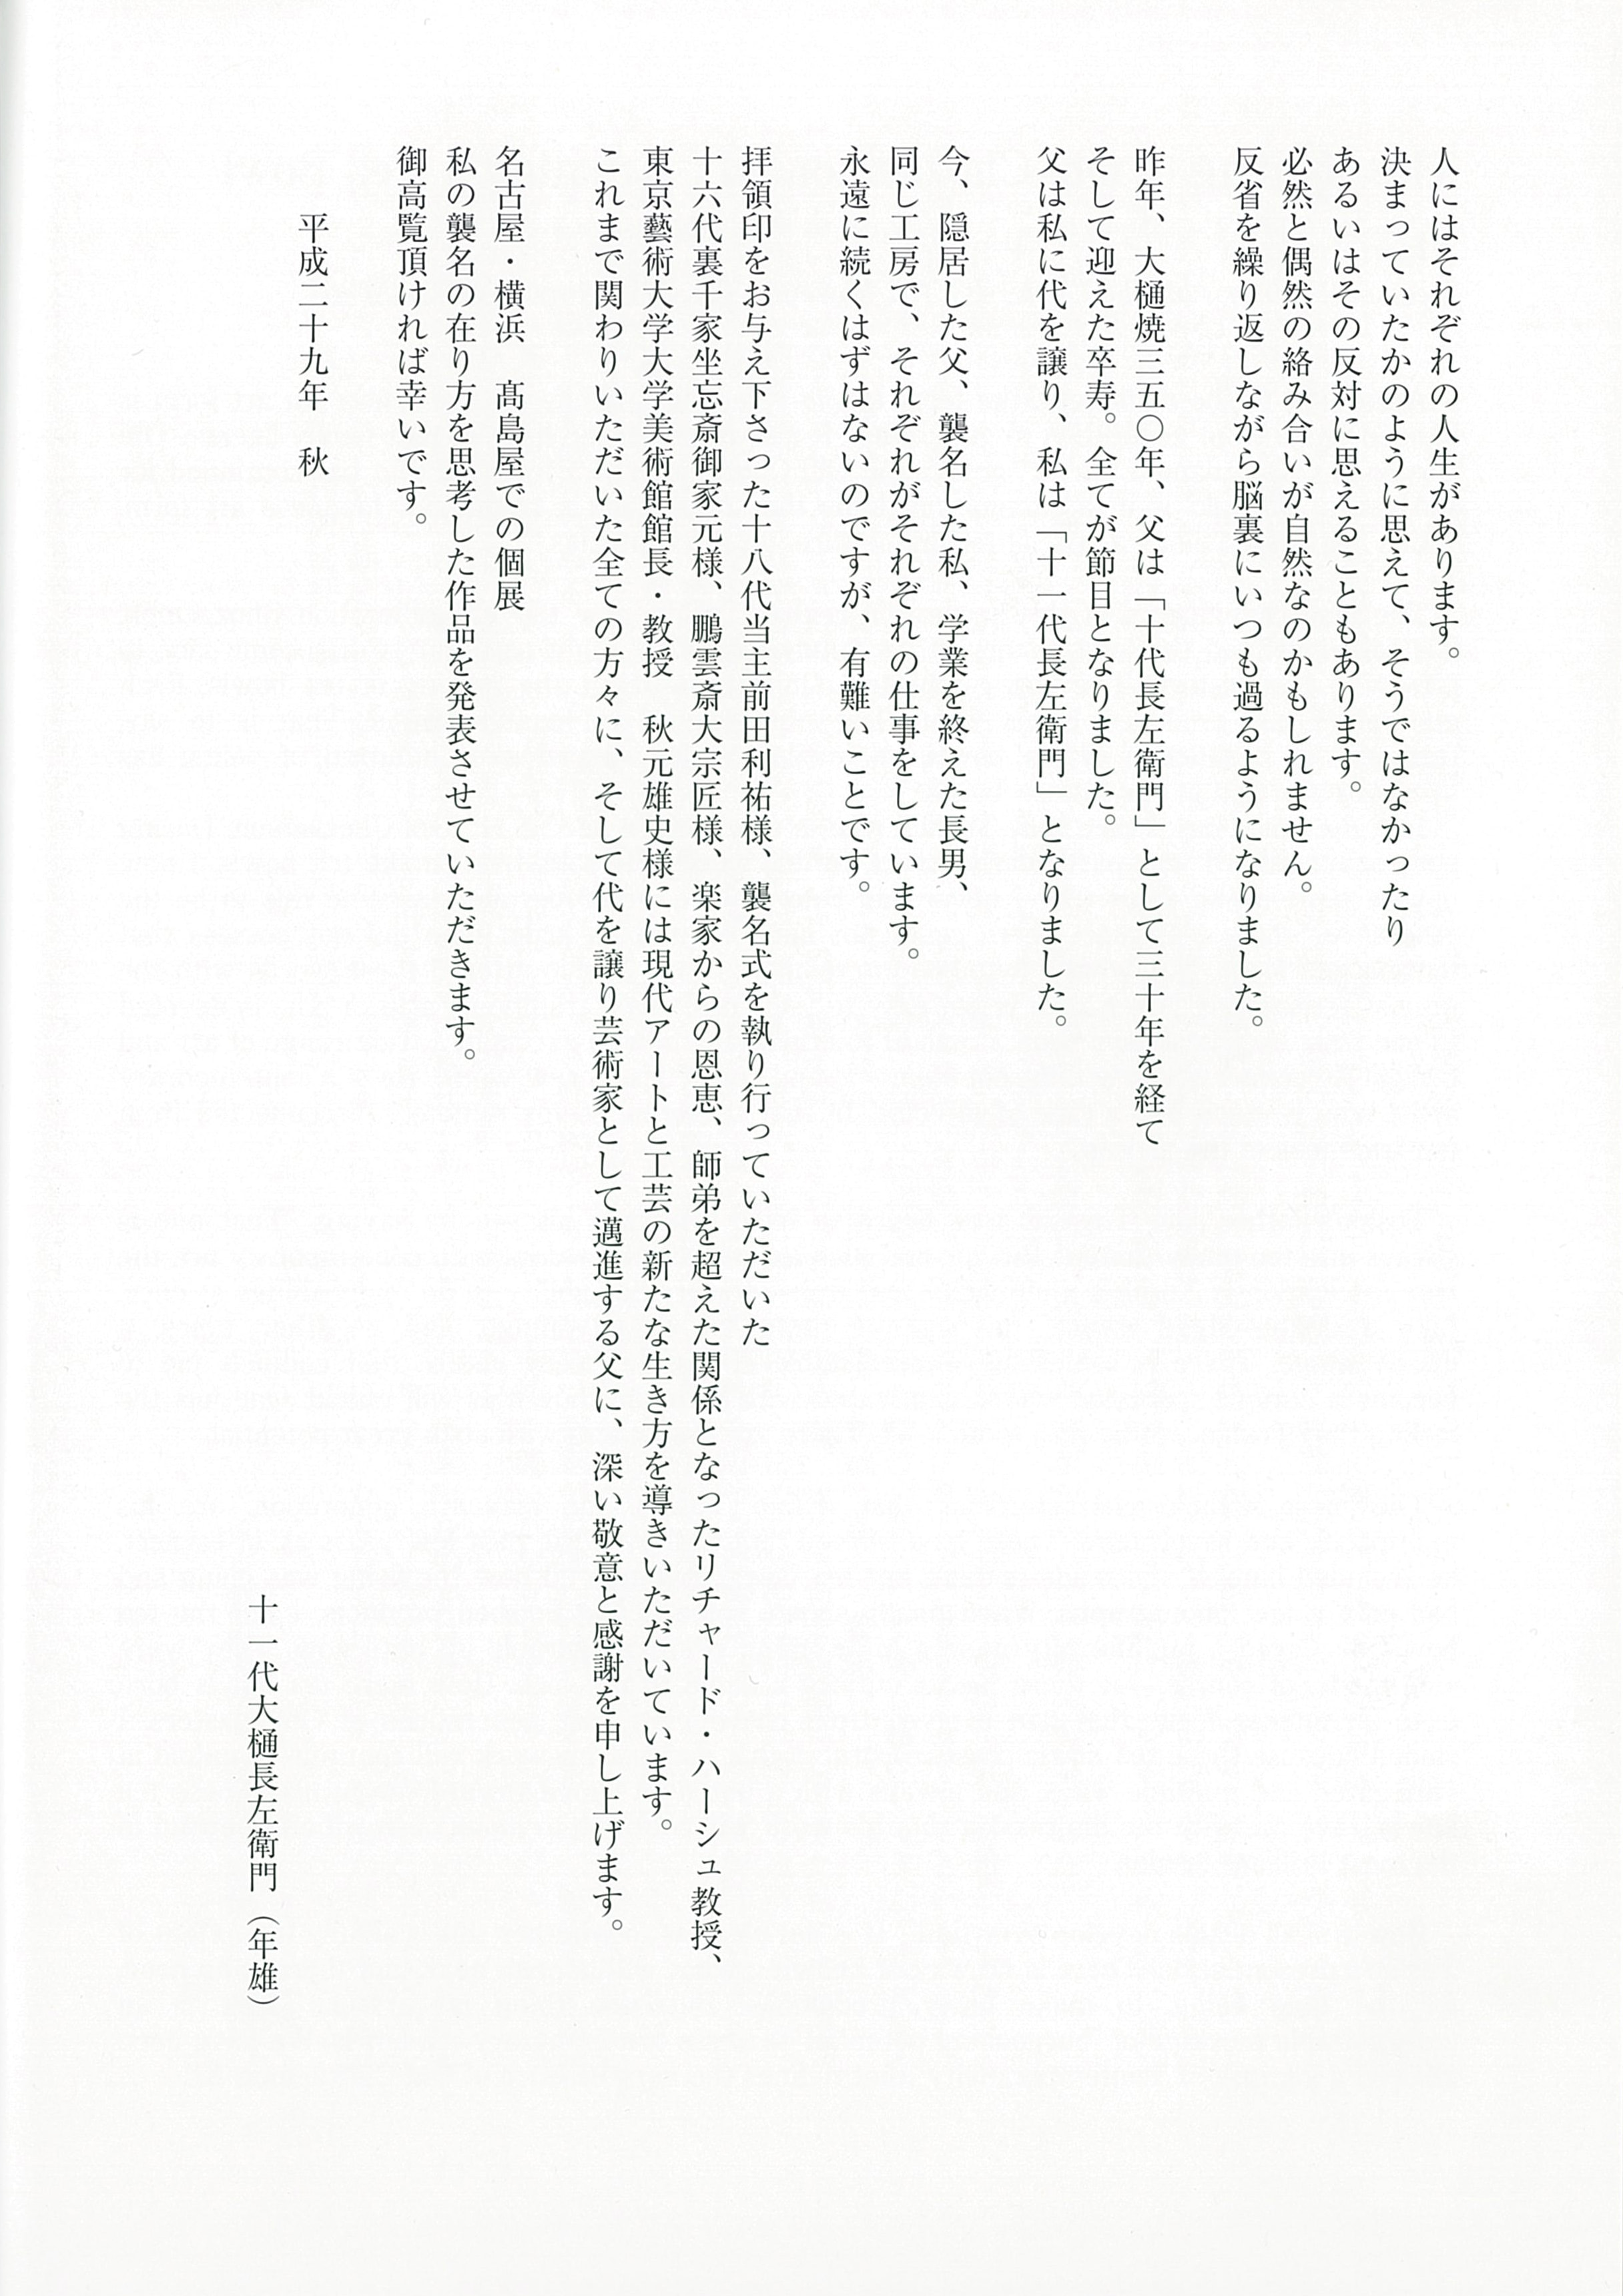 人にはそれぞれの人生があります。
決まっていたかのように思えて、そうではなかったり
あるいはその反対に思えることもあります。
必然と偶然の絡み合いが自然なのかもしれません。
反省を繰り返しながら脳裏にいつも過るようになりました。
昨年、大樋焼三五〇年、父は「十代長左衛門」として三十年を経て
そして迎えた卒寿。全てが節目となりました。
父は私に代を譲り、私は「十一代長左衛門」となりました。
今、隠居した父、襲名した私、学業を終えた長男、
同じ工房で、それぞれがそれぞれの仕事をしています。
永遠に続くはずはないのですが、有難いことです。
拝領印をお与え下さった十八代当主前田利祐様、襲名式を執り行っていただいた
十六代裏千家坐忘斎御家元様、鵬雲斎大宗匠様、楽家からの恩恵、師弟を超えた関係となったリチャード・ハーシュ教授、
東京藝術大学大学美術館館長・教授　秋元雄史様には現代アートと工芸の新たな生き方を導きいただいています。
これまで関わりいただいた全ての方々に、そして代を譲り芸術家として邁進する父に、深い敬意と感謝を申し上げます。
名古屋・横浜　髙島屋での個展
私の襲名の在り方を思考した作品を発表させていただきます。
御高覧頂ければ幸いです。
平成二十九年　秋
十一代大樋長左衛門（年雄）